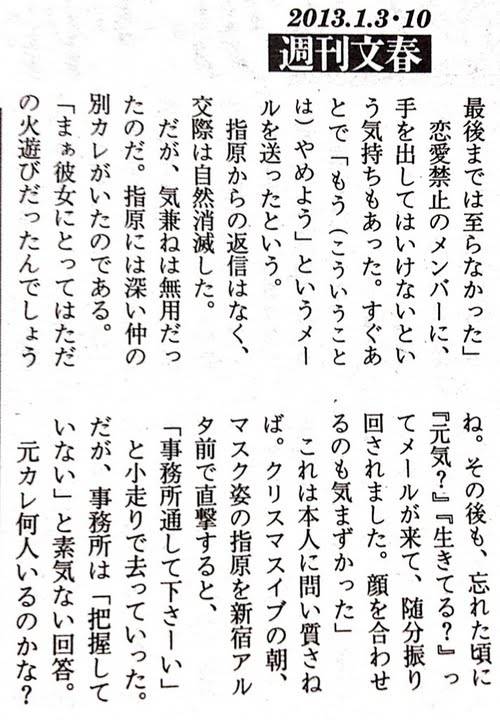 2013.1.3・10
週刊文春
最後までは至らなかった」
恋愛禁止のメンバーに、
手を出してはいけないとい
う気持ちもあった。すぐあ
とで「もう（こういうこと
は）やめよう」というメー
ルを送ったという。
指原からの返信はなく、
交際は自然消滅した。
だが、気兼ねは無用だっ
たのだ。指原には深い仲の
別カレがいたのである。
「まぁ彼女にとってはただ
の火遊びだったんでしょう
ね。その後も、忘れた頃に
『元気？』『生きてる？』っ
てメールが来て、随分振り
回されました。顔を合わせ
るのも気まずかった」
これは本人に問い質さね
ば。クリスマスイブの朝、
マスク姿の指原を新宿アル
タ前で直撃すると、
「事務所通して下さーい」
と小走りで去っていった。
だが、事務所は「把握して
いない」と素気ない回答。
元カレ何人いるのかな？